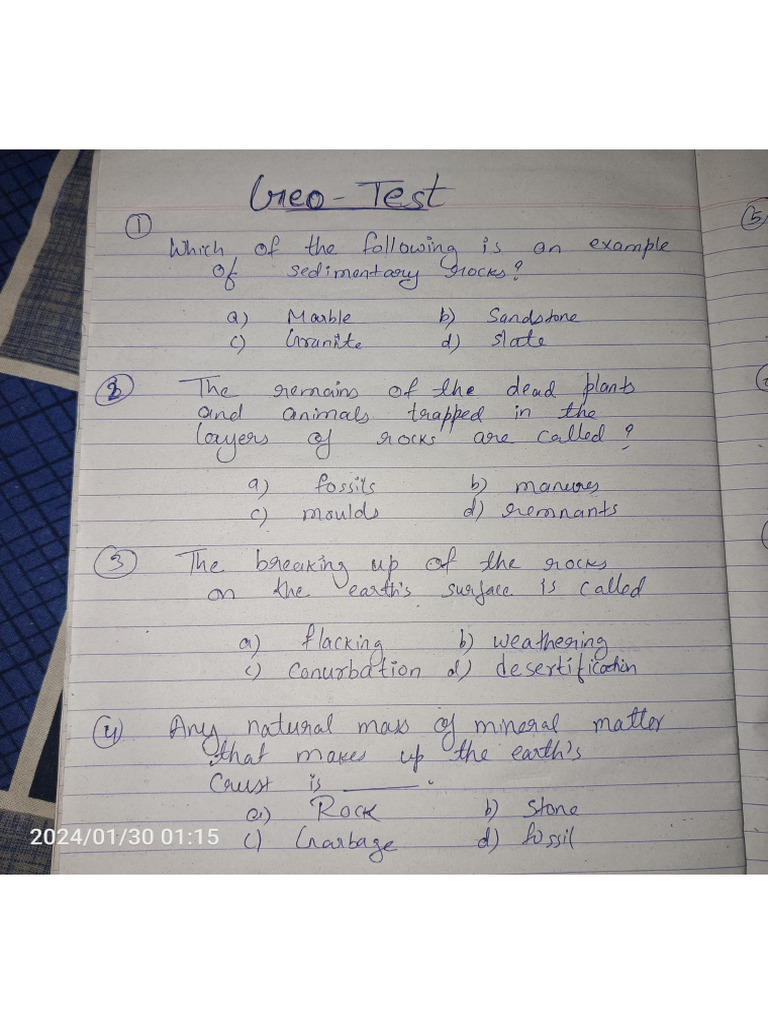 Geo-Test
①
Which of the following is an example
of sedimentary rocks?
a) Marble b) Sandstone
c) Granite d) slate
② The remains of the dead plants
and animals trapped in the
layers of rocks are called?
a) fossils b) manures
c) moulds d) remnants
③ The breaking up of the rocks
on the earth's surface is called
a) flacking b) weathering
c) conurbation d) desertification
④ Any natural mass of mineral matter
that makes up the earth's
Crust is ______.
a) Rock b) Stone
c) Garbage d) fossil
2024/01/30 01:15
⑤